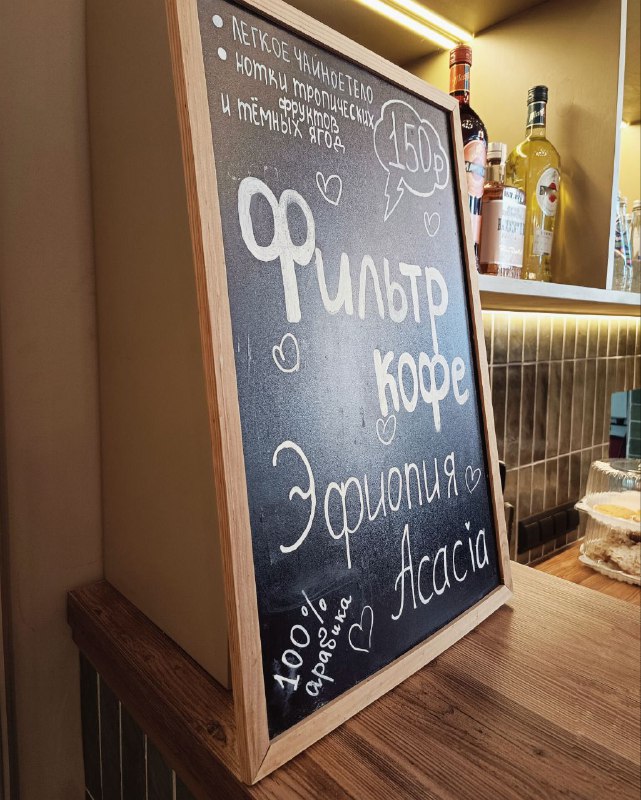 • ЛЕГКОЕ ЧАЙНОЕ ТЕЛО
• НОТКИ ТРОПИЧЕСКИХ
ФРУКТОВ
И ТЁМНЫХ ЯГОД
150₽
Фильтр
кофе
Эфиопия
Acacia
100%
арабика